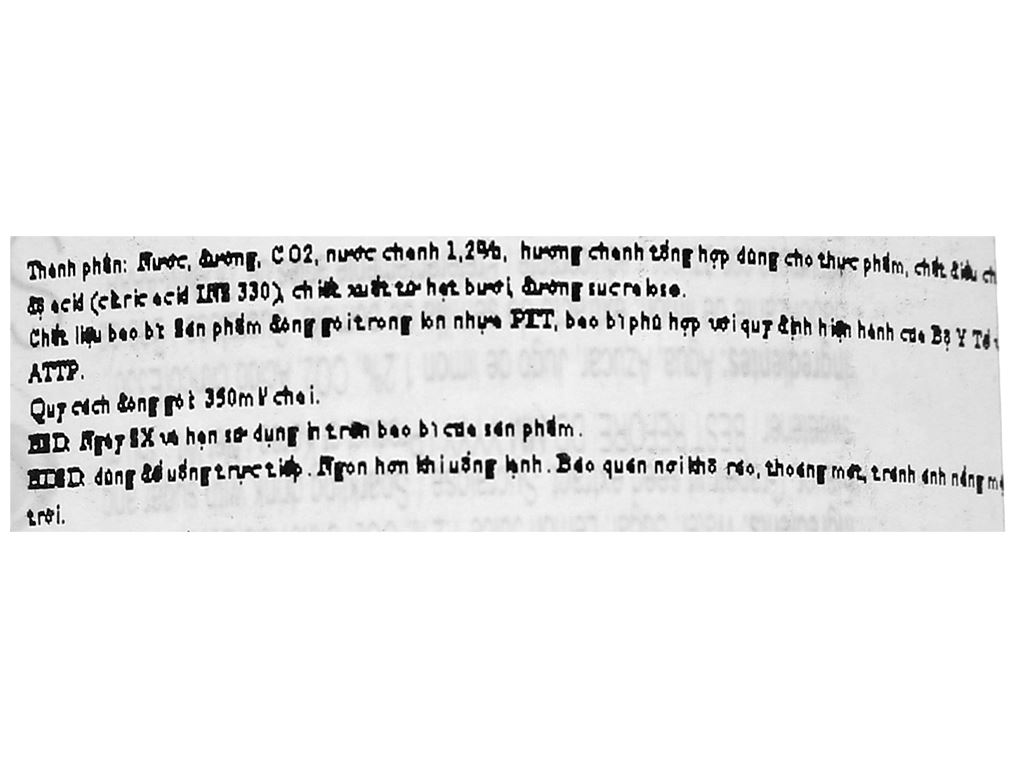 Thành phần: Nước, đường, CO2, nước chanh 1,2%, hương chanh tổng hợp dùng cho thực phẩm, chất điều ch
độ acid (citric acid INS 330), chiết xuất từ hạt bưởi, đường sucralose.
Chất liệu bao bì: Sản phẩm đóng gói trong lon nhựa PET, bao bì phù hợp với quy định hiện hành của Bộ Y Tế
ATTP.
Quy cách đóng gói: 350ml/ chai.
HSD: Ngày SX và hạn sử dụng in trên bao bì của sản phẩm.
HDSD: dùng để uống trực tiếp. Ngon hơn khi uống lạnh. Bảo quản nơi khô ráo, thoáng mát, tránh ánh nắng
trời.